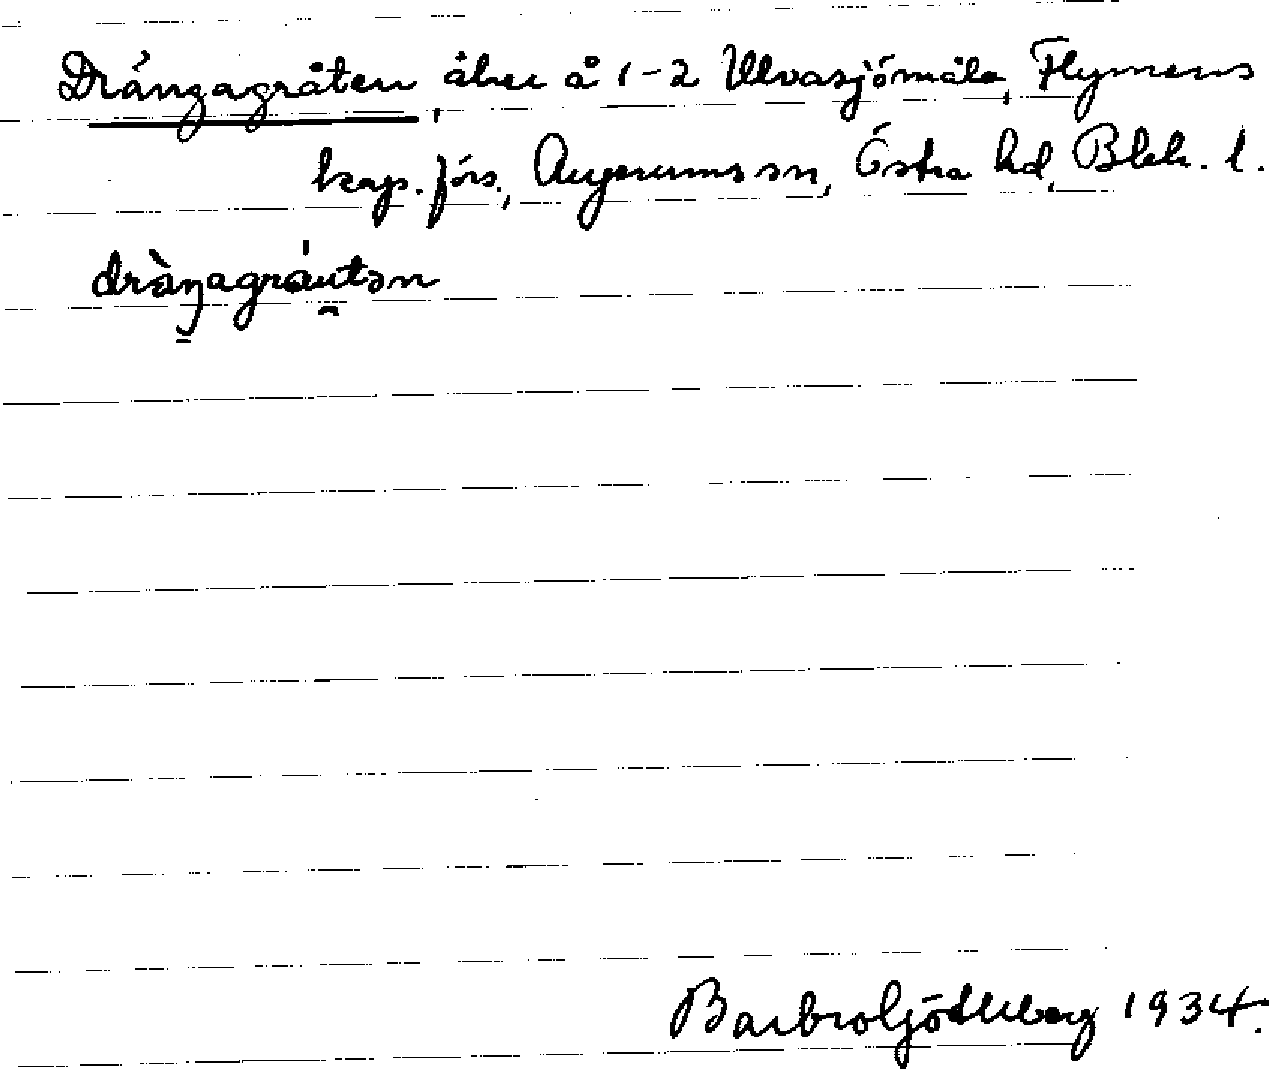 Drängagråten, åker å 1-2 Ulvasjömåla, Flymens
kap. förs., Augerums sn, Östra hd, Blek. l.
dràŋagráutən
Barbro Söderberg 1934.